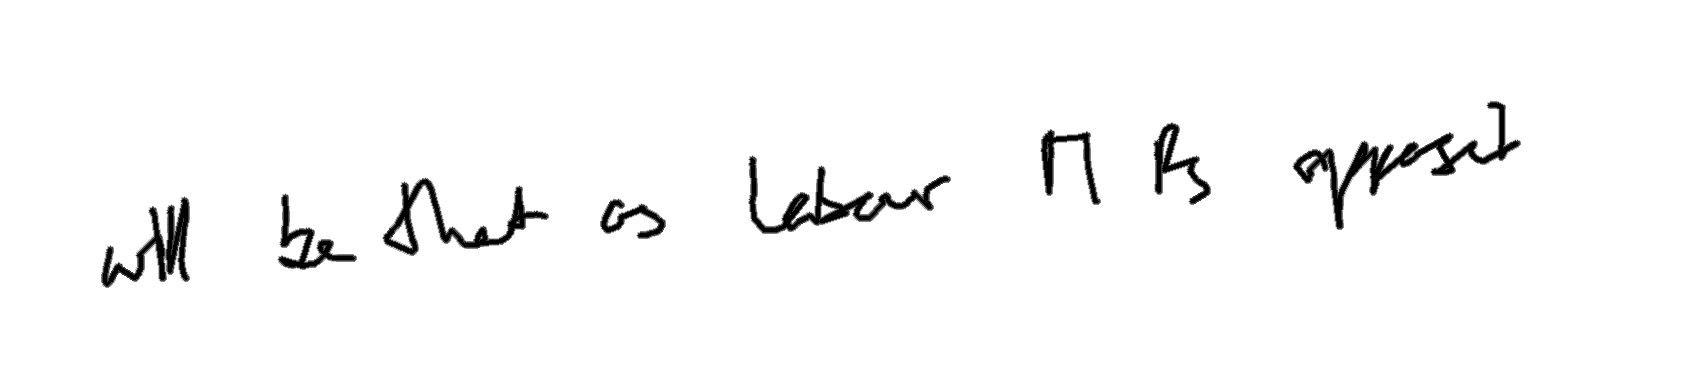 will be that as Labour MPs opposed